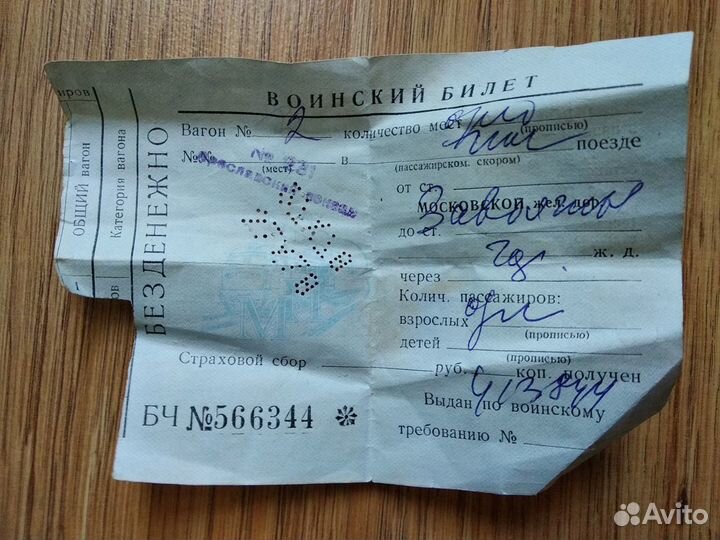 ВОИНСКИЙ БИЛЕТ
Вагон № 2 количество мест одно
(прописью)
№№ в поезде
(мест) (пассажирском. скором)
№ 231
от ст.
МОСКОВСКОЙ жел. дор.
до ст.
ж. д.
через
Колич. пассажиров:
взрослых один
(прописью)
детей
(прописью)
Страховой сбор руб. коп. получен
Выдан по воинскому
требованию №
БЧ №566344 ✻
БЕЗДЕНЕЖНО
Категория вагона
ОБЩИЙ вагон
МПС
Avito